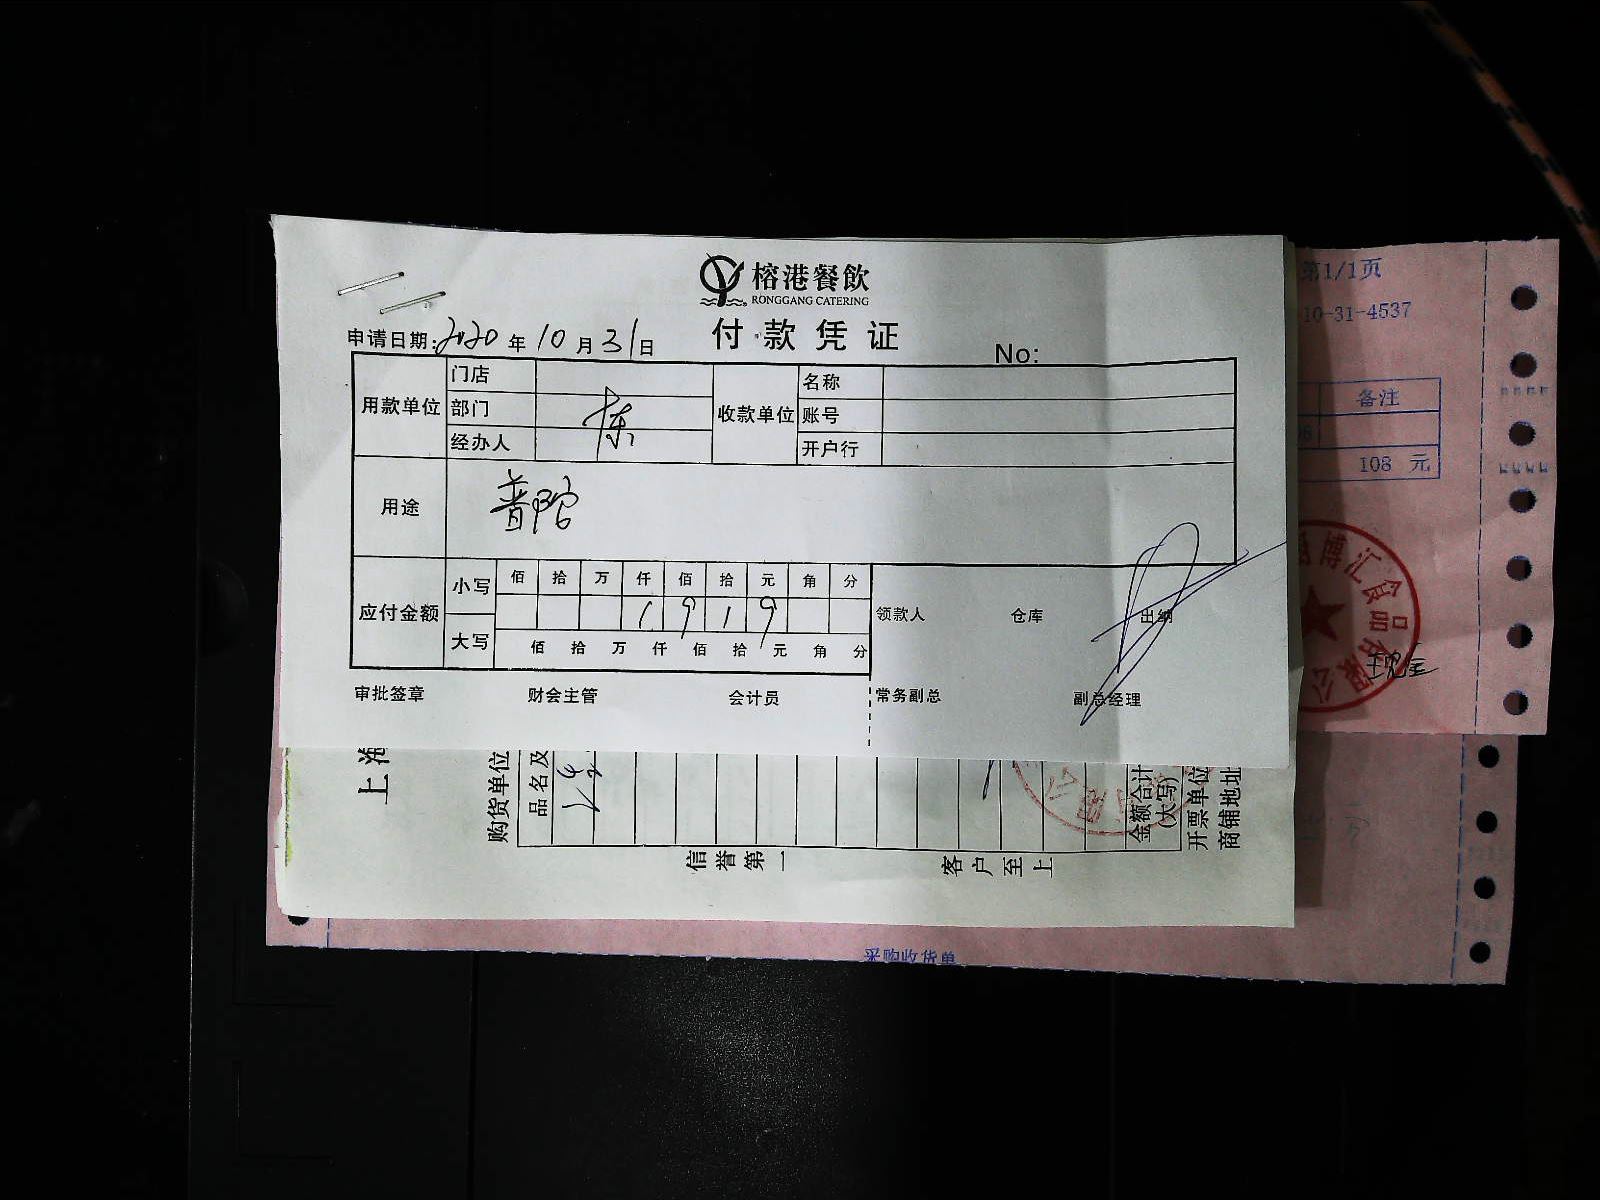 榕港餐飲
RONGGANG CATERING
付款凭证
申请日期:2020年10月31日
No:
用款单位 门店 收款单位 名称
部门 账号
经办人 开户行
用途 普陀
应付金额 小写 佰 拾 万 仟 佰 拾 元 角 分
1 9 1 9
大写 佰 拾 万 仟 佰 拾 元 角 分
领款人 仓库 出纳
审批签章 财会主管 会计员 常务副总 副总经理
第1/1页
10-31-4537
备注
108 元
博汇食品有限公
现金
上海
购货单位
品名及
金额合计
(大写)
开票单位
商铺地址
信誉第一
客户至上
采购收货单